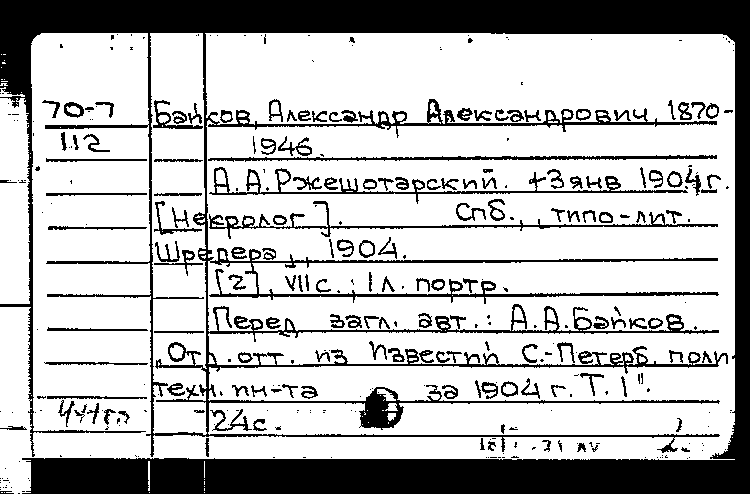 70-7 Байков, Александр Александрович, 1870-
112 1946.
А.А. Ржешотарский. +3 янв 1904 г.
[Некролог]. Спб., типо-лит.
Шредера, 1904.
[2], VII с.; 1 л. портр.
Перед загл. авт.: А.А.Байков.
„Отд. отт. из Известий С.-Петерб. поли-
техн. ин-та за 1904 г. Т. I".
24 с.
2.